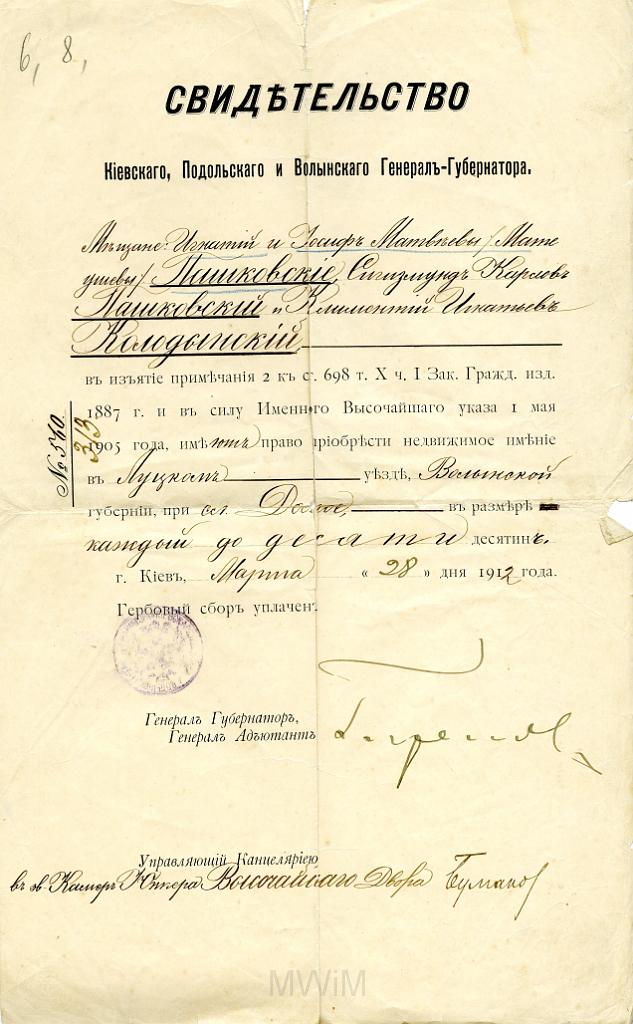 6, 8,
СВИДѢТЕЛЬСТВО
Кіевскаго, Подольскаго и Волынскаго Генералъ-Губернатора.
Мѣщане: Игнатій и Іосифъ Матвѣевы /Мате
ушевы/ Пашковскіе, Сигизмундъ Карловъ
Пашковскій и Климентій Игнатьевъ
Колодынскій,
въ изъятіе примѣчанія 2 къ ст. 698 т. X ч. I Зак. Гражд. изд.
1887 г. и въ силу Именного Высочайшаго указа 1 мая
1905 года, имѣютъ право пріобрѣсти недвижимое имѣніе
въ Луцкомъ уѣздѣ, Волынской
губерніи, при въ размѣрѣ
каждый до десяти десятинъ.
г. Кіевъ, Марта « 28 » дня 1912 года.
Гербовый сборъ уплаченъ.
№ 560
313
Генералъ Губернаторъ,
Генералъ Адъютантъ
Управляющій Канцеляріею
въ зв. Камеръ Юнкера Высочайшаго Двора
MWiM